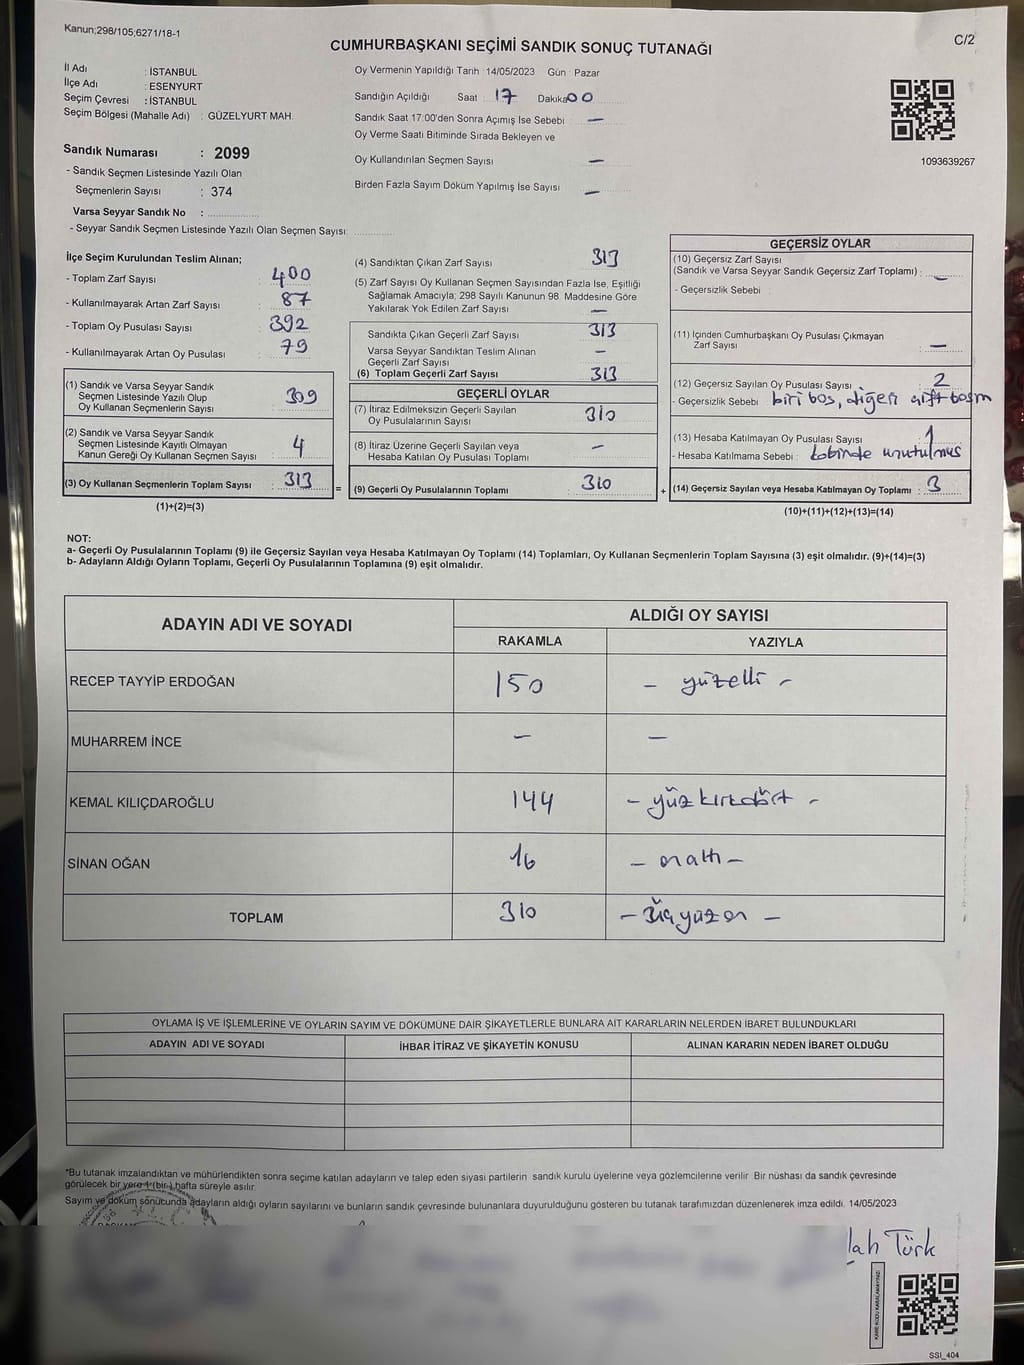 Kanun;298/105;6271/18-1
C/2
CUMHURBAŞKANI SEÇİMİ SANDIK SONUÇ TUTANAĞI
İl Adı : İSTANBUL
İlçe Adı : ESENYURT
Seçim Çevresi : İSTANBUL
Seçim Bölgesi (Mahalle Adı) : GÜZELYURT MAH.
Sandık Numarası : 2099
- Sandık Seçmen Listesinde Yazılı Olan
Seçmenlerin Sayısı : 374
Varsa Seyyar Sandık No :
- Seyyar Sandık Seçmen Listesinde Yazılı Olan Seçmen Sayısı:
Oy Vermenin Yapıldığı Tarih : 14/05/2023 Gün : Pazar
Sandığın Açıldığı Saat : 17 Dakika 00
Sandık Saat 17:00'den Sonra Açımış İse Sebebi : —
Oy Verme Saati Bitiminde Sırada Bekleyen ve
Oy Kullandırılan Seçmen Sayısı —
Birden Fazla Sayım Döküm Yapılmış İse Sayısı —
1093639267
İlçe Seçim Kurulundan Teslim Alınan;
- Toplam Zarf Sayısı : 400
- Kullanılmayarak Artan Zarf Sayısı : 87
- Toplam Oy Pusulası Sayısı : 392
- Kullanılmayarak Artan Oy Pusulası : 79
(1) Sandık ve Varsa Seyyar Sandık
Seçmen Listesinde Yazılı Olup
Oy Kullanan Seçmenlerin Sayısı : 309
(2) Sandık ve Varsa Seyyar Sandık
Seçmen Listesinde Kayıtlı Olmayan
Kanun Gereği Oy Kullanan Seçmen Sayısı : 4
(3) Oy Kullanan Seçmenlerin Toplam Sayısı : 313
(1)+(2)=(3)
=
(4) Sandıktan Çıkan Zarf Sayısı : 313
(5) Zarf Sayısı Oy Kullanan Seçmen Sayısından Fazla İse, Eşitliği
Sağlamak Amacıyla; 298 Sayılı Kanunun 98. Maddesine Göre
Yakılarak Yok Edilen Zarf Sayısı : —
Sandıkta Çıkan Geçerli Zarf Sayısı : 313
Varsa Seyyar Sandıktan Teslim Alınan
Geçerli Zarf Sayısı : —
(6) Toplam Geçerli Zarf Sayısı : 313
GEÇERLİ OYLAR
(7) İtiraz Edilmeksizin Geçerli Sayılan
Oy Pusulalarının Sayısı : 310
(8) İtiraz Üzerine Geçerli Sayılan veya
Hesaba Katılan Oy Pusulası Toplamı : —
(9) Geçerli Oy Pusulalarının Toplamı : 310
+
GEÇERSİZ OYLAR
(10) Geçersiz Zarf Sayısı
(Sandık ve Varsa Seyyar Sandık Geçersiz Zarf Toplamı) : —
- Geçersizlik Sebebi :
(11) İçinden Cumhurbaşkanı Oy Pusulası Çıkmayan
Zarf Sayısı : —
(12) Geçersiz Sayılan Oy Pusulası Sayısı : 2
- Geçersizlik Sebebi : biri boş, diğeri çift basım
(13) Hesaba Katılmayan Oy Pusulası Sayısı : 1
- Hesaba Katılmama Sebebi : kabinde unutulmuş
(14) Geçersiz Sayılan veya Hesaba Katılmayan Oy Toplamı : 3
(10)+(11)+(12)+(13)=(14)
NOT:
a- Geçerli Oy Pusulalarının Toplamı (9) ile Geçersiz Sayılan veya Hesaba Katılmayan Oy Toplamı (14) Toplamları, Oy Kullanan Seçmenlerin Toplam Sayısına (3) eşit olmalıdır. (9)+(14)=(3)
b- Adayların Aldığı Oyların Toplamı, Geçerli Oy Pusulalarının Toplamına (9) eşit olmalıdır.
ADAYIN ADI VE SOYADI
ALDIĞI OY SAYISI
RAKAMLA YAZIYLA
RECEP TAYYİP ERDOĞAN 150 – yüzelli –
MUHARREM İNCE – –
KEMAL KILIÇDAROĞLU 144 – yüzkırkdört –
SİNAN OĞAN 16 – onaltı –
TOPLAM 310 – üçyüzon –
OYLAMA İŞ VE İŞLEMLERİNE VE OYLARIN SAYIM VE DÖKÜMÜNE DAİR ŞİKAYETLERLE BUNLARA AİT KARARLARIN NELERDEN İBARET BULUNDUKLARI
ADAYIN ADI VE SOYADI İHBAR İTİRAZ VE ŞİKAYETİN KONUSU ALINAN KARARIN NEDEN İBARET OLDUĞU
*Bu tutanak imzalandıktan ve mühürlendikten sonra seçime katılan adayların ve talep eden siyasi partilerin sandık kurulu üyelerine veya gözlemcilerine verilir. Bir nüshası da sandık çevresinde
görülecek bir yere 1 (bir) hafta süreyle asılır.
Sayım ve döküm sonucunda adayların aldığı oyların sayılarını ve bunların sandık çevresinde bulunanlara duyurulduğunu gösteren bu tutanak tarafımızdan düzenlenerek imza edildi. 14/05/2023
lah Türk
KARE KODU KARALAMAYINIZ!
SSI_404